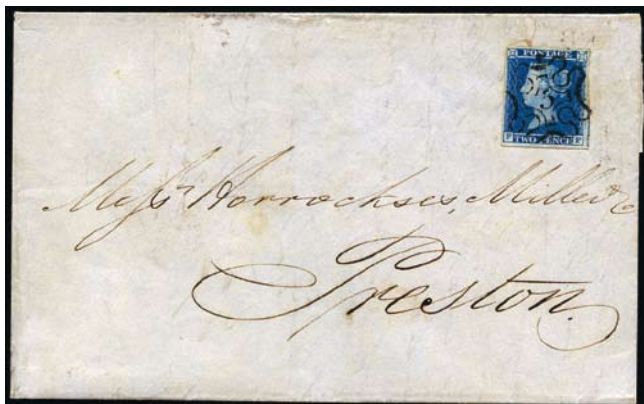 POSTAGE
TWO PENCE
Messrs Horrockses, Miller &
Preston.